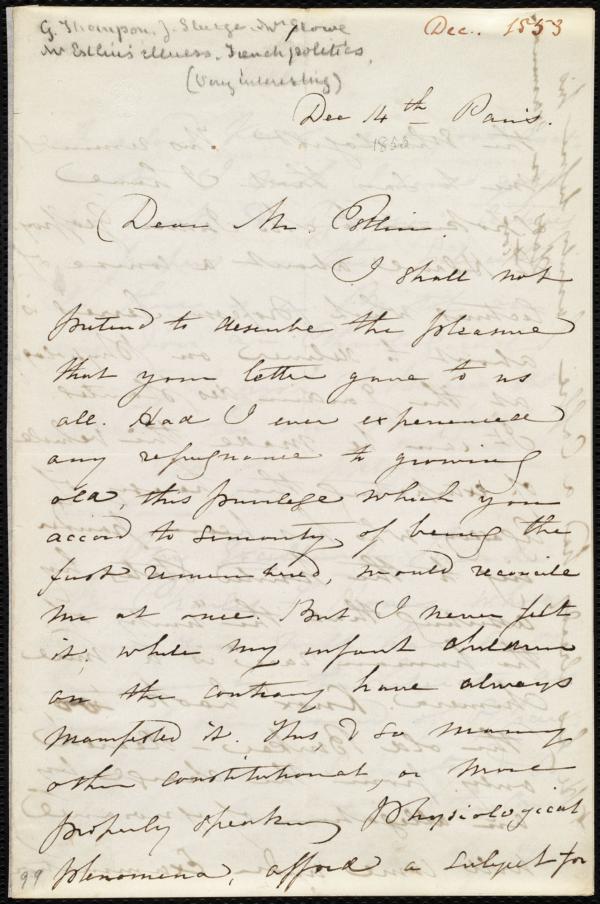 G. Thompson. J. Sturge. Mrs Stowe
Mr Estlin's illness. French politics.
(Very interesting)
Dec.. 1853
Dec 4th Paris.
1853
Dear Mr. Estlin.
I shall not
pretend to describe the pleasure
that your letter gave to us
all. Had I ever experienced
any repugnance to growing
old, this privilege which you
accord to seniority, of being the
first remembered, would reconcile
me at once. But I never felt
it, while my infant children
on the contrary have always
manifested it. This, & so many
other constitutional, or more
properly speaking Physiological
phenomena, afford a subject for
99